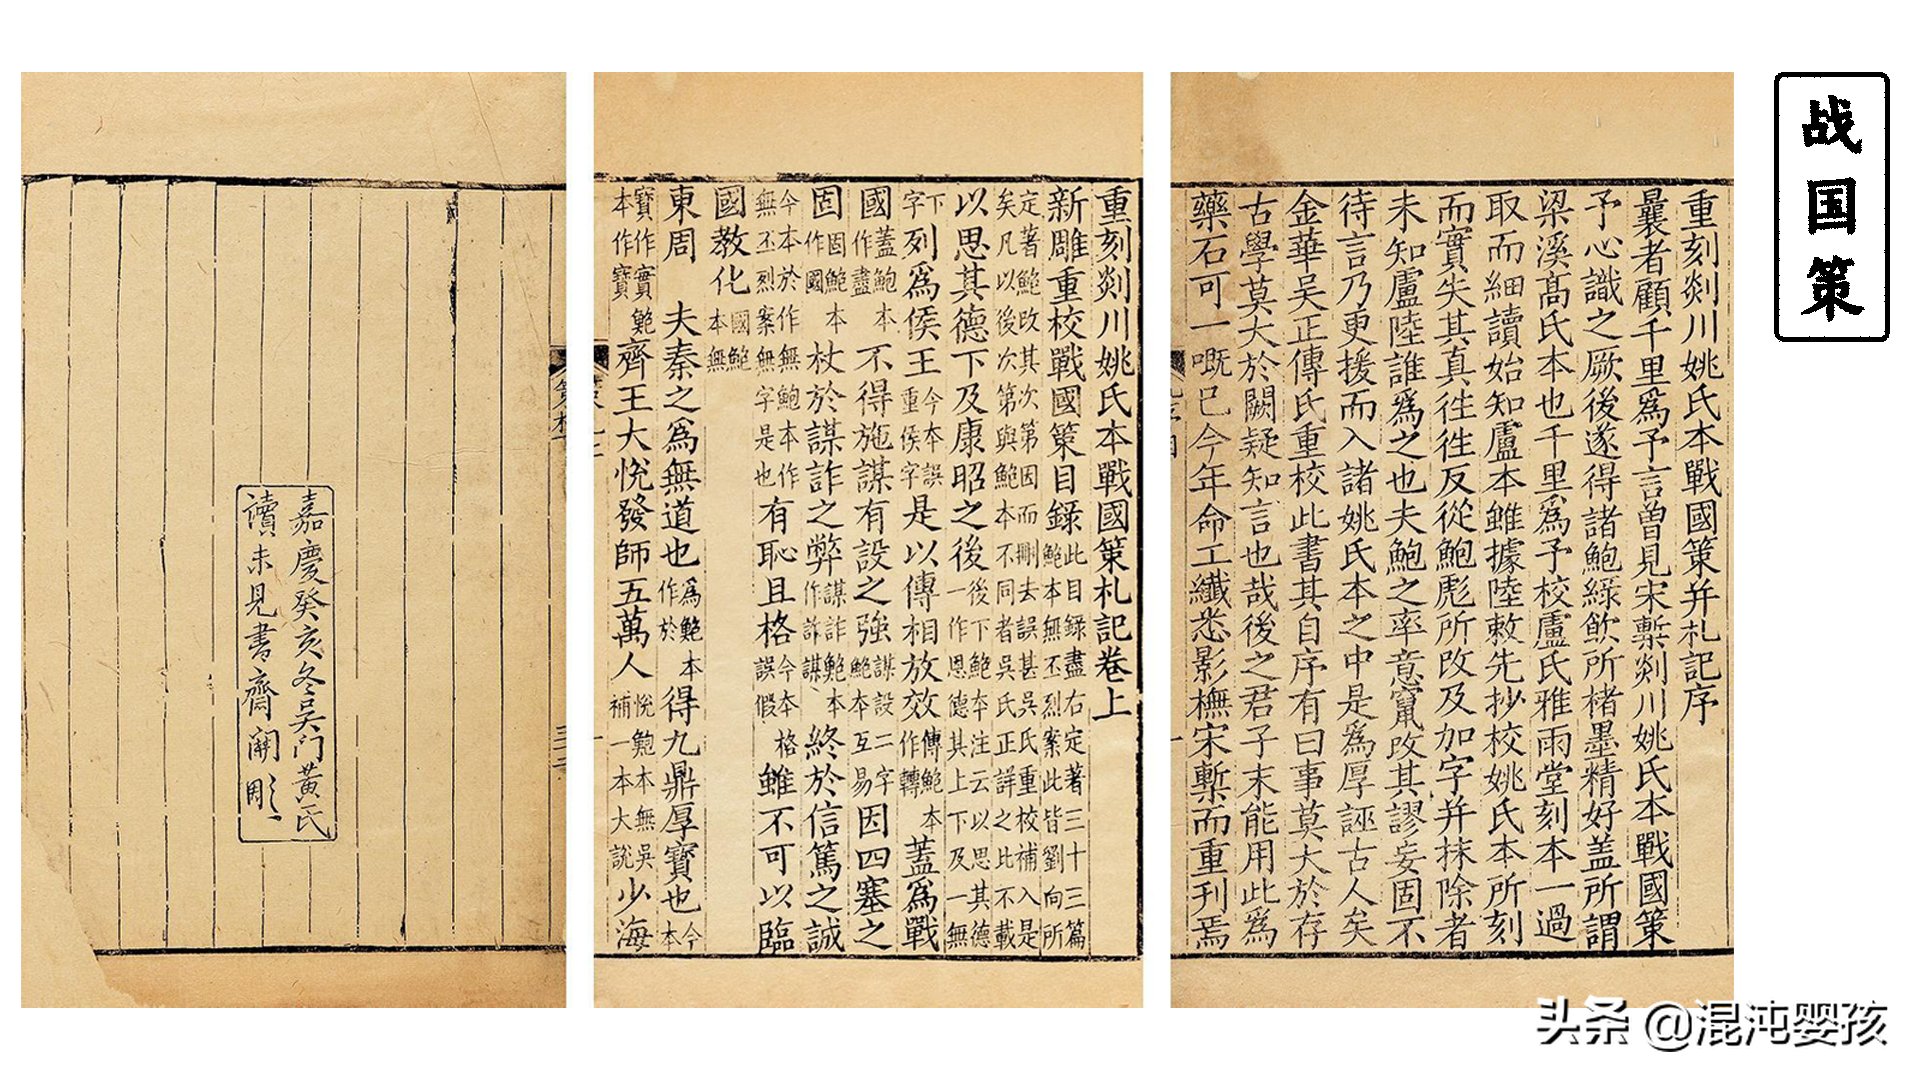 战国策
重刻剡川姚氏本戰國策并札記序
曩者顧千里爲予言曽見宋槧剡川姚氏本戰國策
予心識之厥後遂得諸鮑綠飲所楮墨精好蓋所謂
梁溪高氏本也千里爲予校盧氏雅雨堂刻本一過
取而細讀始知盧本雖據陸敕先抄校姚氏本所刻
而實失其真往往反從鮑彪所改及加字并抹除者
未知盧陸誰爲之也夫鮑之率意竄改其謬妄固不
待言乃更援而入諸姚氏本之中是爲厚誣古人矣
金華吴正傳氏重校此書其自序有曰事莫大於存
古學莫大於闕疑知言也哉後之君子未能用此爲
藥石可一嘅已今年命工纖悉影橅宋槧而重刊焉
重刻剡川姚氏本戰國策札記卷上
新雕重校戰國策目錄此目録盡右定著三十三篇鮑本無丕烈案此皆劉向所
定著鮑改其次第因而刪去誤甚吳氏重校補入是矣凡以後次第與鮑本不同者吳氏正詳之比不載
以思其德下及康昭之後後下鮑本注云以思其德一作恩德其上下及一無
下字列爲侯王今本誤重侯字是以傳相放效傳鮑本作轉蓋爲戰
國蓋鮑本作盡不得施謀有設之強謀設二字鮑本互易因四塞之
固固鮑本作國杖於謀詐之弊謀詐鮑本作詐謀終於信篤之誠
今本於作無鮑本作無丕烈案無字是也有恥且格今本格誤假雖不可以臨
國教化國鮑本無
東周 夫秦之爲無道也爲鮑本作於得九鼎厚寶也今本
寶作實鮑本作寶齊王大悅發師五萬人悅鮑本無吳補一本大說少海
嘉慶癸亥冬吳門黃氏
讀未見書齋開雕
头条 @混沌婴孩